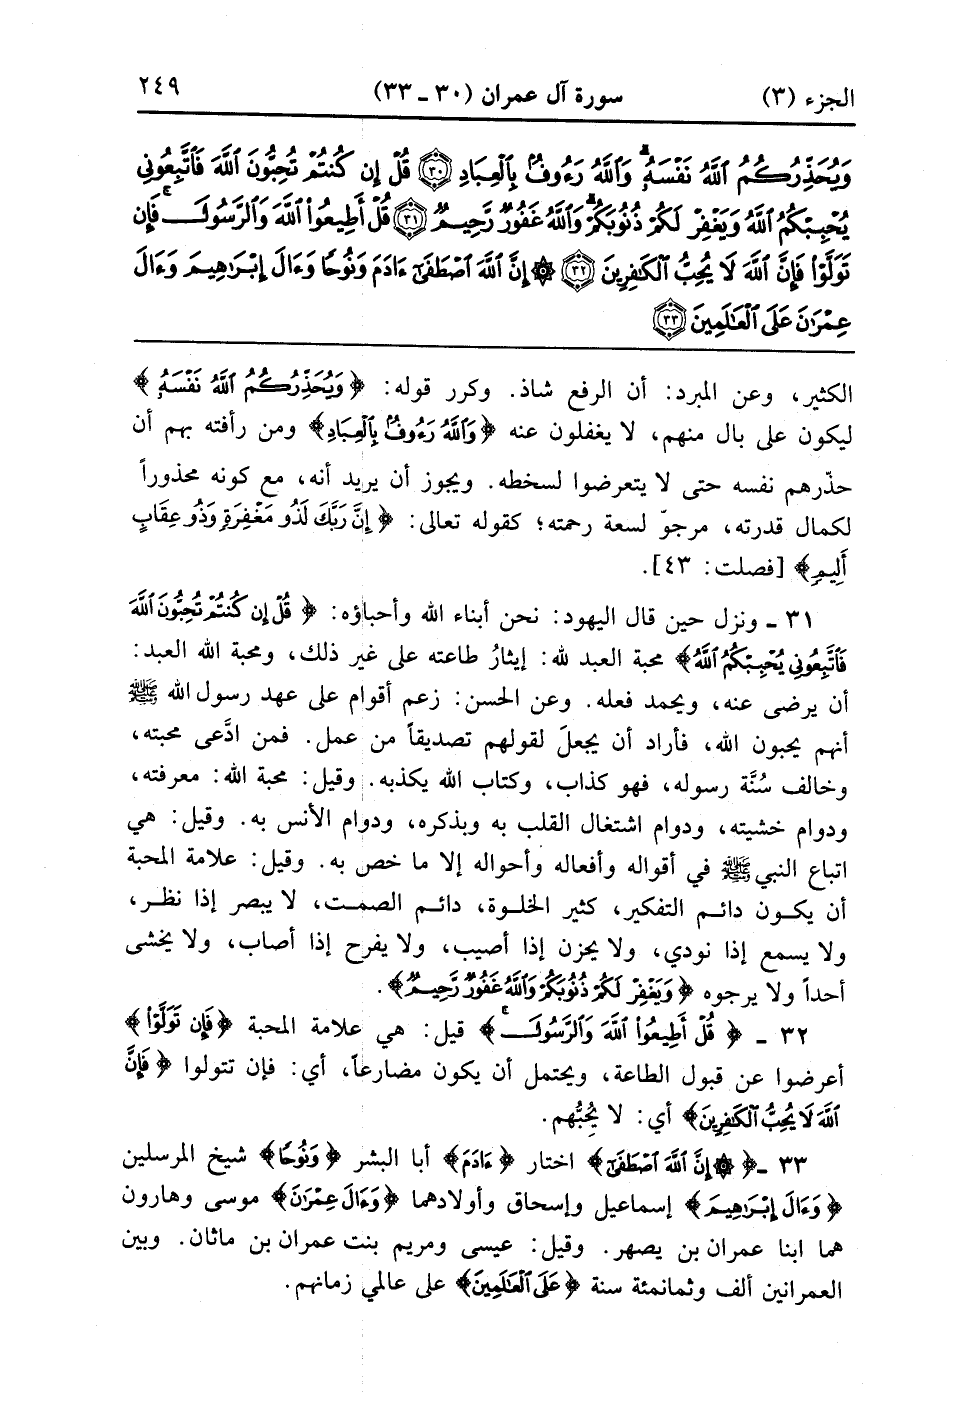 الجزء (٣) سورة آل عمران (٣٠ ـ ٣٣) ٢٤٩
وَيُحَذِّرُكُمُ ٱللَّهُ نَفْسَهُۥۗ وَٱللَّهُ رَءُوفُۢ بِٱلْعِبَادِ ۝٣٠ قُلْ إِن كُنتُمْ تُحِبُّونَ ٱللَّهَ فَٱتَّبِعُونِى
يُحْبِبْكُمُ ٱللَّهُ وَيَغْفِرْ لَكُمْ ذُنُوبَكُمْۗ وَٱللَّهُ غَفُورٌ رَّحِيمٌ ۝٣١ قُلْ أَطِيعُوا۟ ٱللَّهَ وَٱلرَّسُولَۖ فَإِن
تَوَلَّوْا۟ فَإِنَّ ٱللَّهَ لَا يُحِبُّ ٱلْكَٰفِرِينَ ۝٣٢ ۞ إِنَّ ٱللَّهَ ٱصْطَفَىٰٓ ءَادَمَ وَنُوحًا وَءَالَ إِبْرَٰهِيمَ وَءَالَ
عِمْرَٰنَ عَلَى ٱلْعَٰلَمِينَ ۝٣٣
الكثير، وعن المبرد: أن الرفع شاذ. وكرر قوله: ﴿وَيُحَذِّرُكُمُ ٱللَّهُ نَفْسَهُۥ﴾
ليكون على بال منهم، لا يغفلون عنه ﴿وَٱللَّهُ رَءُوفُۢ بِٱلْعِبَادِ﴾ ومن رأفته بهم أن
حذّرهم نفسه حتى لا يتعرضوا لسخطه. ويجوز أن يريد أنه، مع كونه محذوراً
لكمال قدرته، مرجوّ لسعة رحمته؛ كقوله تعالى: ﴿إِنَّ رَبَّكَ لَذُو مَغْفِرَةٍ وَذُو عِقَابٍ
أَلِيمٍ﴾ [فصلت: ٤٣].
٣١ ـ ونزل حين قال اليهود: نحن أبناء الله وأحباؤه: ﴿قُلْ إِن كُنتُمْ تُحِبُّونَ ٱللَّهَ
فَٱتَّبِعُونِى يُحْبِبْكُمُ ٱللَّهُ﴾ محبة العبد لله: إيثارُ طاعته على غير ذلك، ومحبة الله العبد:
أن يرضى عنه، ويحمد فعله. وعن الحسن: زعم أقوام على عهد رسول الله ﷺ
أنهم يحبون الله، فأراد أن يجعلَ لقولهم تصديقاً من عمل. فمن ادَّعى محبته،
وخالف سُنَّة رسوله، فهو كذاب، وكتاب الله يكذبه. وقيل: محبة الله: معرفته،
ودوام خشيته، ودوام اشتغال القلب به وبذكره، ودوام الأنس به. وقيل: هي
اتباع النبي ﷺ في أقواله وأفعاله وأحواله إلا ما خص به. وقيل: علامة المحبة
أن يكون دائم التفكير، كثير الخلوة، دائم الصمت، لا يبصر إذا نظر،
ولا يسمع إذا نودي، ولا يحزن إذا أصيب، ولا يفرح إذا أصاب، ولا يخشى
أحداً ولا يرجوه ﴿وَيَغْفِرْ لَكُمْ ذُنُوبَكُمْ وَٱللَّهُ غَفُورٌ رَّحِيمٌ﴾.
٣٢ ـ ﴿قُلْ أَطِيعُوا۟ ٱللَّهَ وَٱلرَّسُولَۖ﴾ قيل: هي علامة المحبة ﴿فَإِن تَوَلَّوْا۟﴾
أعرضوا عن قبول الطاعة، ويحتمل أن يكون مضارعاً، أي: فإن تتولوا ﴿فَإِنَّ
ٱللَّهَ لَا يُحِبُّ ٱلْكَٰفِرِينَ﴾ أي: لا يُحِبُّهم.
٣٣ ـ ﴿۞ إِنَّ ٱللَّهَ ٱصْطَفَىٰٓ﴾ اختار ﴿ءَادَمَ﴾ أبا البشر ﴿وَنُوحًا﴾ شيخ المرسلين
﴿وَءَالَ إِبْرَٰهِيمَ﴾ إسماعيل وإسحاق وأولادهما ﴿وَءَالَ عِمْرَٰنَ﴾ موسى وهارون
هما ابنا عمران بن يصهر. وقيل: عيسى ومريم بنت عمران بن ماثان. وبين
العمرانين ألف وثمانمئة سنة ﴿عَلَى ٱلْعَٰلَمِينَ﴾ على عالمي زمانهم.